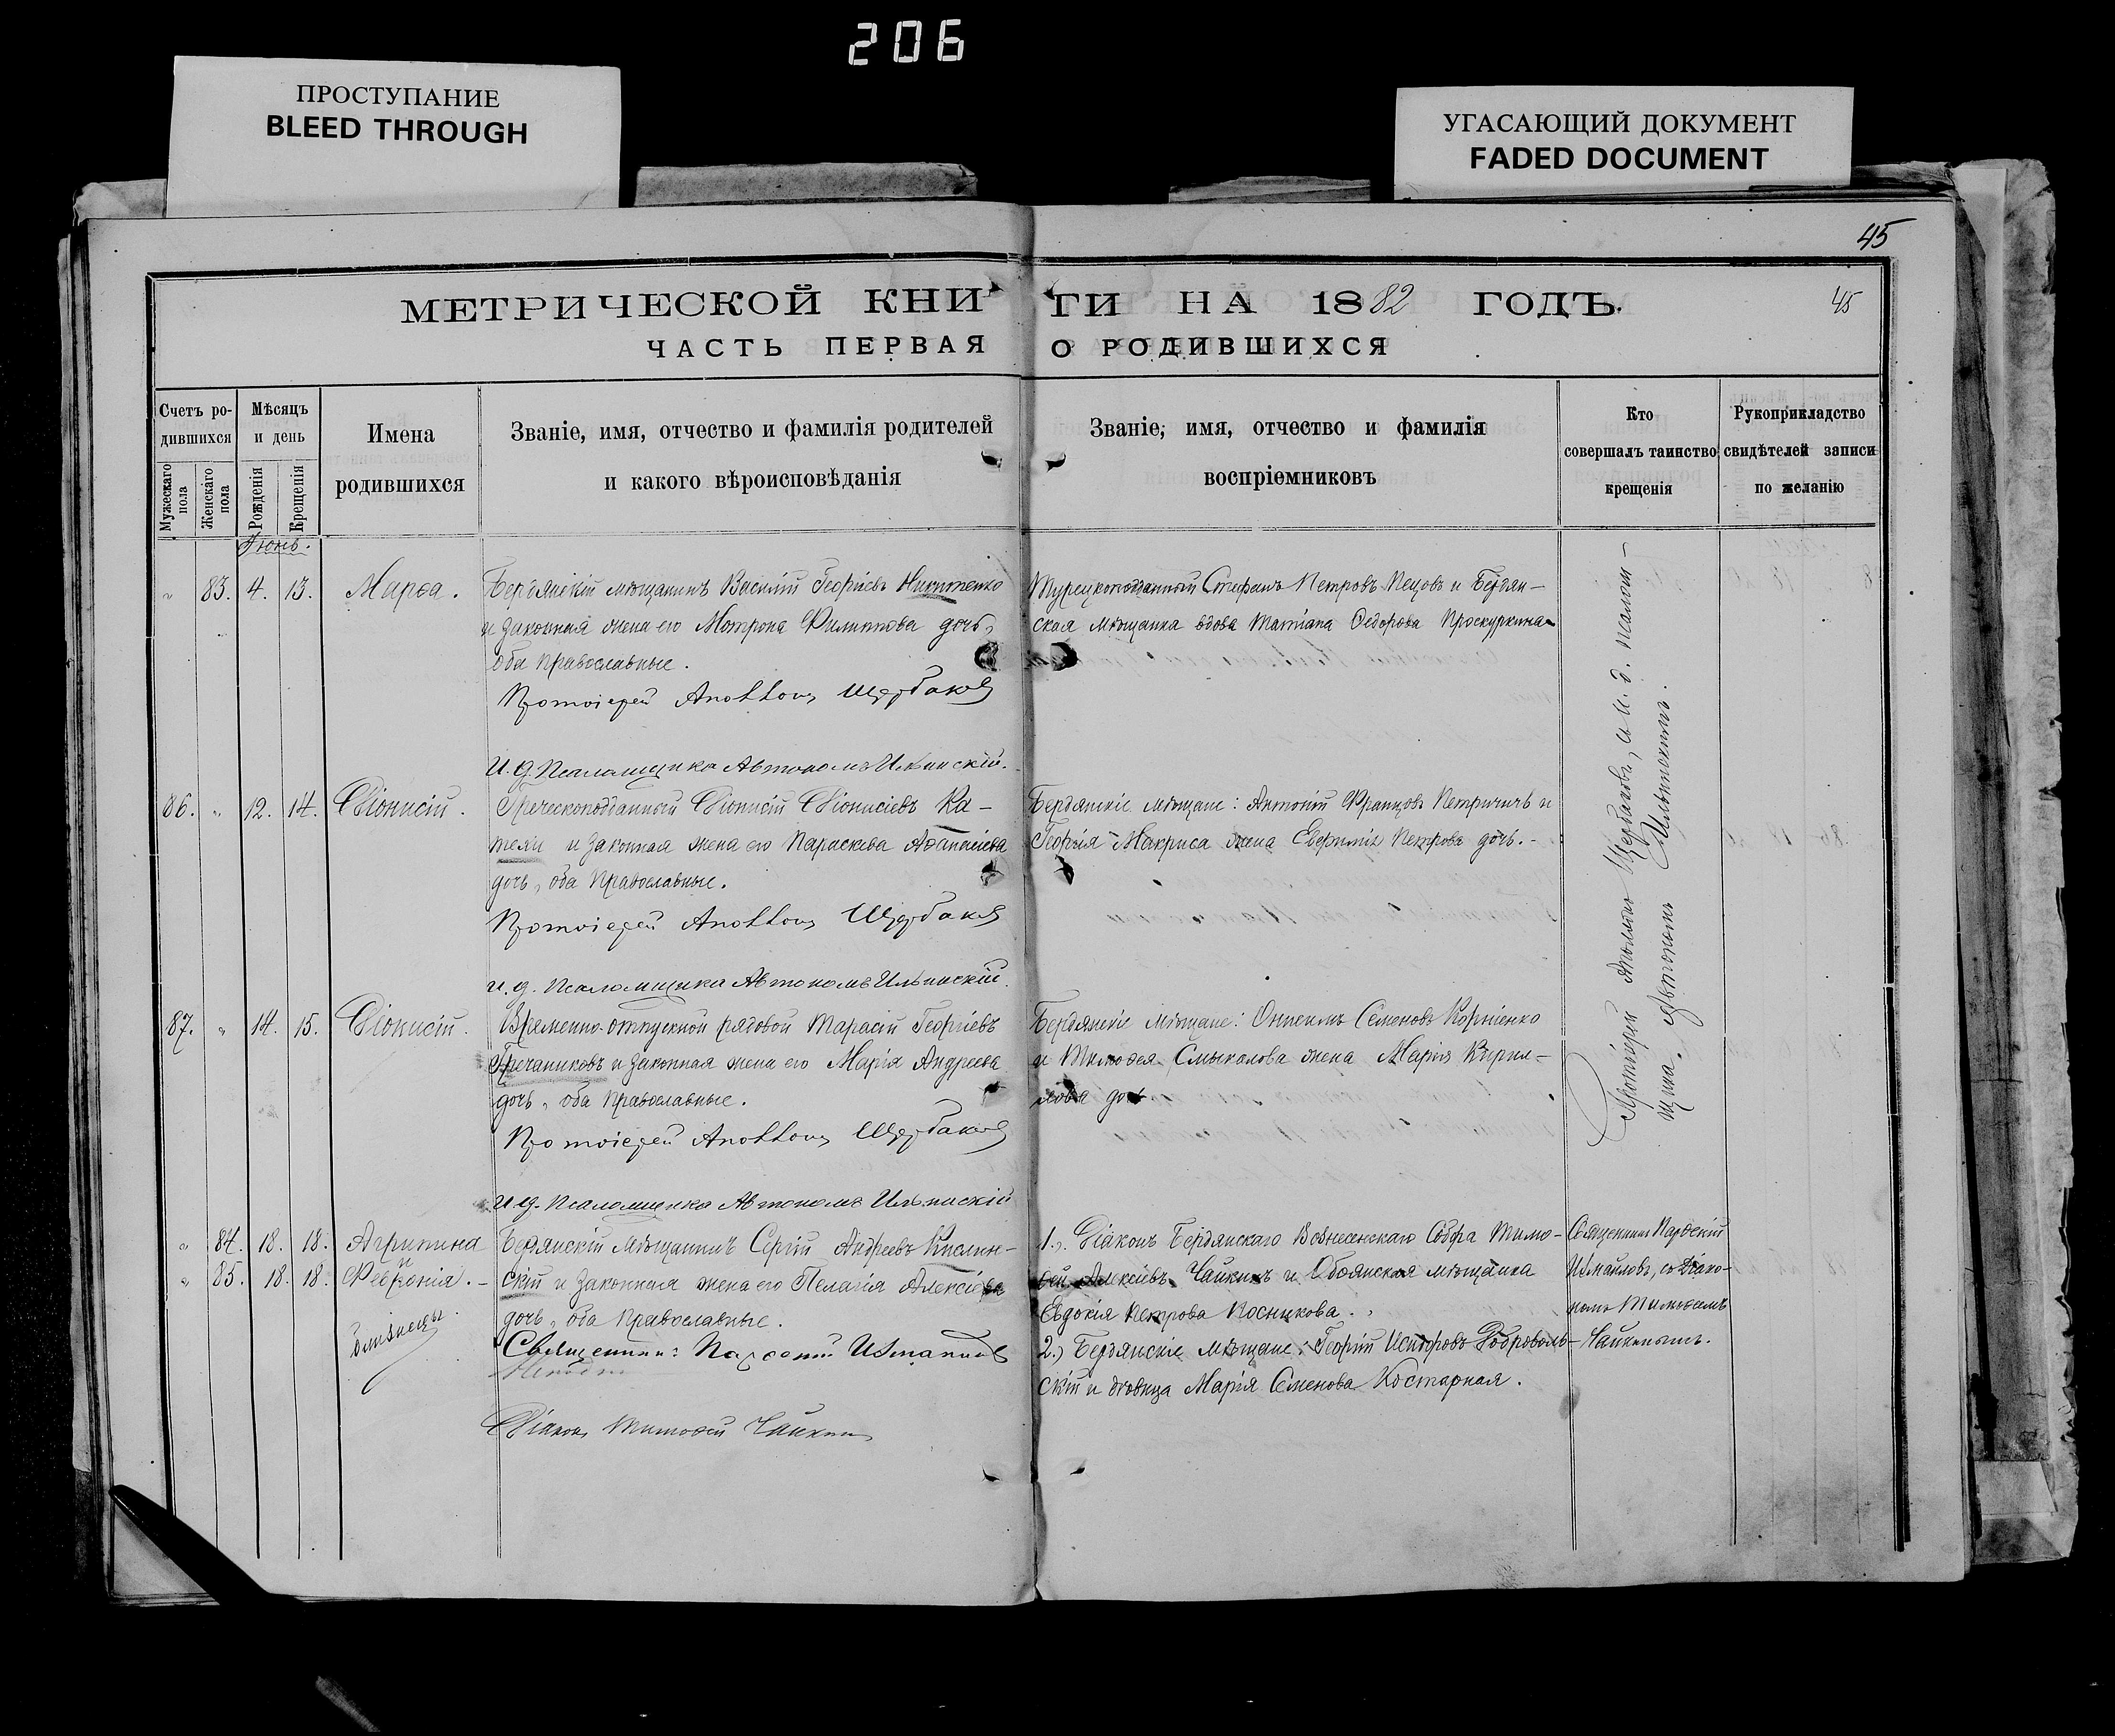 206
ПРОСТУПАНИЕ
BLEED THROUGH
УГАСАЮЩИЙ ДОКУМЕНТ
FADED DOCUMENT
45
МЕТРИЧЕСКОЙ КНИГИ НА 1882 ГОДЪ.
45
ЧАСТЬ ПЕРВАЯ О РОДИВШИХСЯ
Счетъ родившихся
Мужескаго пола
Женскаго пола
Мѣсяцъ и день
Рожденія
Крещенія
Имена родившихся
Званіе, имя, отчество и фамилія родителей
и какого вѣроисповѣданія
Званіе, имя, отчество и фамилія
воспріемниковъ
Кто
совершалъ таинство
крещенія
Рукоприкладство
свидѣтелей записи
по желанію
Іюнь.
" 83. 4. 13. Марѳа.
Бердянскій мѣщанинъ Василій Георгіевъ Никитенко
и законная жена его Мотрона Филиппова дочь,
оба православные.
Протоіерей Аполлонъ Щербаковъ
И. д. Псаломщика Автономъ Ильинскій.
Турецкоподданный Стефанъ Петровъ Пецовъ и Бердян-
ская мѣщанка вдова Татіана Ѳедорова Проскуркина
86. " 12. 14. Діонисій.
Греческоподданный Діонисій Діонисіевъ Ка-
тели и законная жена его Параскева Аѳанасіева
дочь, оба православные.
Протоіерей Аполлонъ Щербаковъ
и. д. Псаломщика Автономъ Ильинскій.
Бердянскіе мѣщане: Антоній Францовъ Петричичъ и
Георгія Макриса жена Евфимія Петрова дочь.-
87. " 14. 15. Діонисій.
Временно-отпускной рядовой Тарасій Георгіевъ
Гречаниковъ и законная жена его Марія Андреева
дочь, оба православные.
Протоіерей Аполлонъ Щербаковъ
и д. Псаломщика Автономъ Ильинскій
Бердянскіе мѣщане: Онисимъ Семеновъ Корніенко
и Тимоѳея Смыкалова жена Марія Кирил-
лова дочь
Протоіерей Аполлонъ Щербаковъ, и И. д. псалом-
щика Автономъ Ильинскій.
" 84. 18. 18. Агрипина
" 85. 18. 18. Февронія.-
близнецы.
Бердянскій мѣщанинъ Сергій Андреевъ Кислин-
скій и законная жена его Пелагія Алексіева
дочь, оба православные.
Священникъ: Парѳеній Измаиловъ
Діаконъ Тимоѳей Чайкинъ
1.) Діаконъ Бердянскаго Вознесенскаго Собора Тимо-
ѳей Алексіевъ Чайкинъ и Обоянская мѣщанка
Евдокія Петрова Косникова.
2.) Бердянскіе мѣщане: Георгій Исидоровъ Доброволь-
скій и дѣвица Марія Семенова Костарная.
Священникъ Парѳеній
Измайловъ, съ Діако-
номъ Тимоѳеемъ
Чайкинымъ.